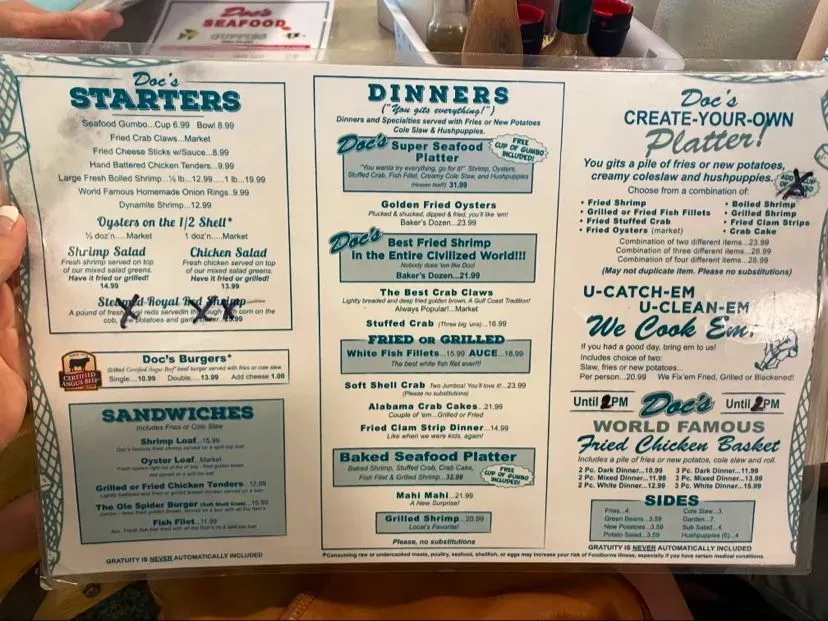 Doc's
SEAFOOD
Doc's
STARTERS
Seafood Gumbo...Cup 6.99 Bowl 8.99
Fried Crab Claws...Market
Fried Cheese Sticks w/Sauce...8.99
Hand Battered Chicken Tenders...9.99
Large Fresh Boiled Shrimp...½ lb...12.99 .....1 lb...19.99
World Famous Homemade Onion Rings..9.99
Dynamite Shrimp...12.99
Oysters on the 1/2 Shell*
½ doz'n.....Market 1 doz'n.....Market
Shrimp Salad
Fresh shrimp served on top
of our mixed salad greens.
Have it fried or grilled!
14.99
Chicken Salad
Fresh chicken served on top
of our mixed salad greens.
Have it fried or grilled!
13.99
Steamed Royal Red Shrimp
A pound of fresh royal reds served in the rough corn on the
cob, new potatoes and
Doc's Burgers*
Grilled Certified Angus Beef® beef burger served with fries or cole slaw
Single....10.99 Double....13.99 Add cheese 1.00
CERTIFIED
ANGUS BEEF
SANDWICHES
Includes Fries or Cole Slaw
Shrimp Loaf...15.99
Doc's famous fried shrimp served on a split top loaf
Oyster Loaf...Market
Fresh oysters right out of the bay - fried golden brown
and served on a split top loaf
Grilled or Fried Chicken Tenders...12.99
Lightly battered and fried or grilled breast chicken served on a bun
The Ole Spider Burger (Soft Shell Crab)...15.99
Jumbo - deep fried golden brown, served on a bun with all the fixin's
Fish Filet...11.99
GRATUITY IS NEVER AUTOMATICALLY INCLUDED
DINNERS
("You gits everything!")
Dinners and Specialties served with Fries or New Potatoes
Cole Slaw & Hushpuppies.
Doc's Super Seafood
Platter
FREE
CUP OF GUMBO
INCLUDED!
"You wanta try everything, go for it!" Shrimp, Oysters,
Stuffed Crab, Fish Fillet, Creamy Cole Slaw, and Hushpuppies
(Heaven itself) 31.99
Golden Fried Oysters
Plucked & shucked, dipped & fried, you'll like 'em!
Baker's Dozen...23.99
Doc's Best Fried Shrimp
In the Entire Civilized World!!!
Nobody does 'em like Doc!
Baker's Dozen...21.99
The Best Crab Claws
Lightly breaded and deep fried golden brown. A Gulf Coast Tradition!
Always Popular!...Market
Stuffed Crab (Three big 'uns)...16.99
FRIED OR GRILLED
White Fish Fillets...15.99 AUCE...18.99
The best white fish filet ever!!!
Soft Shell Crab Two Jumbos! You'll love it!...23.99
(Please no substitutions)
Alabama Crab Cakes...21.99
Couple of 'em...Grilled or Fried
Fried Clam Strip Dinner...14.99
Like when we were kids, again!
Baked Seafood Platter
Baked Shrimp, Stuffed Crab, Crab Cake,
Fish Filet & Grilled Shrimp...32.99
FREE
CUP OF GUMBO
INCLUDED!
Mahi Mahi...21.99
A New Surprise!
Grilled Shrimp...20.99
Local's Favorite!
Please, no substitutions
*Consuming raw or undercooked meats, poultry, seafood, shellfish, or eggs may increase your risk of Foodborne Illness, especially if you have certain medical conditions.
Doc's
CREATE-YOUR-OWN
Platter!
You gits a pile of fries or new potatoes,
creamy coleslaw and hushpuppies.
Choose from a combination of:
• Fried Shrimp
• Grilled or Fried Fish Fillets
• Fried Stuffed Crab
• Fried Oysters (market)
• Boiled Shrimp
• Grilled Shrimp
• Fried Clam Strips
• Crab Cake
Combination of two different items...23.99
Combination of three different items...26.99
Combination of four different items...28.99
(May not duplicate item. Please no substitutions)
U-CATCH-EM
U-CLEAN-EM
We Cook Em!
If you had a good day, bring em to us!
Includes choice of two:
Slaw, fries or new potatoes...
Per person...20.99 We Fix'em Fried, Grilled or Blackened!
Until 2PM Doc's Until 2PM
WORLD FAMOUS
Fried Chicken Basket
Includes a pile of fries or new potatos, cole slaw and roll.
2 Pc. Dark Dinner...10.99 3 Pc. Dark Dinner...11.99
2 Pc. Mixed Dinner...11.99 3 Pc. Mixed Dinner...13.99
2 Pc. White Dinner...12.99 3 Pc. White Dinner...15.99
SIDES
Fries...4.
Green Beans...3.59
New Potatoes...3.59
Potato Salad...3.59
Cole Slaw...3.
Garden...7.
Sub Salad...4.
Hushpuppies (6)...4
GRATUITY IS NEVER AUTOMATICALLY INCLUDED